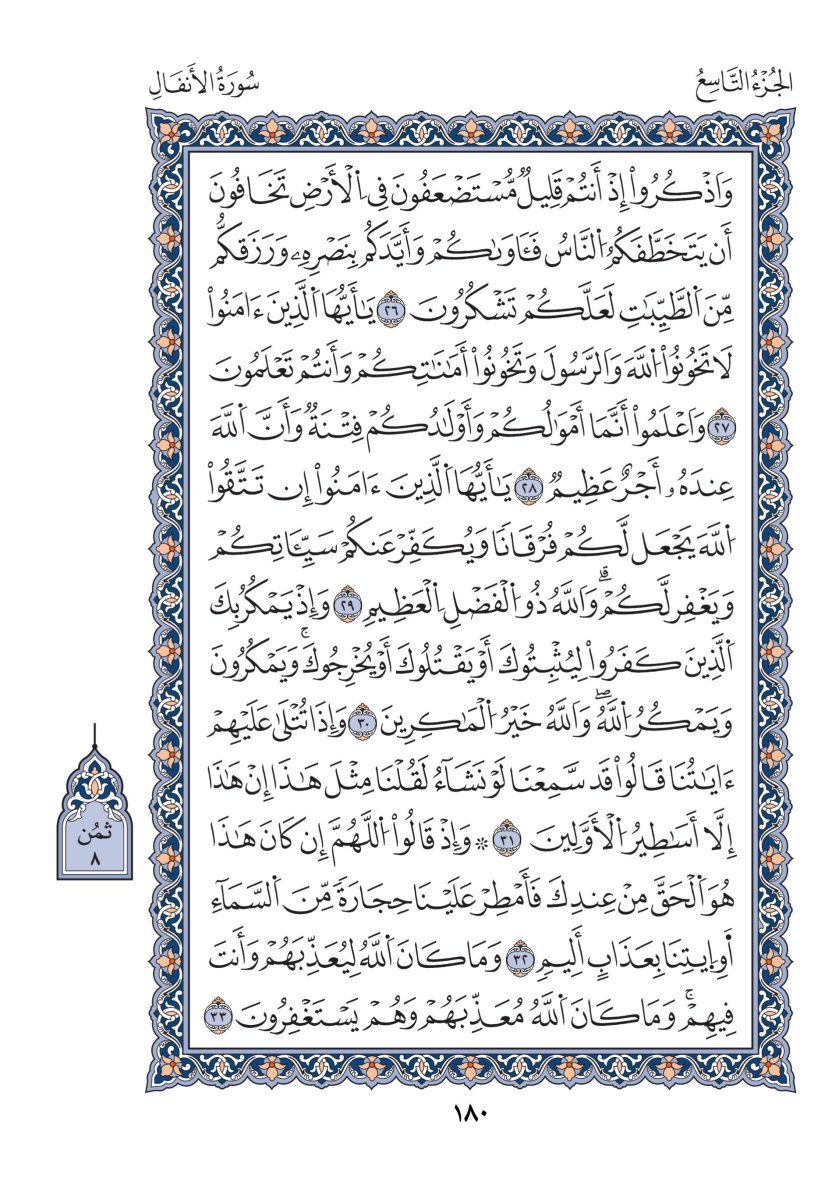 الجُزْءُ التَّاسِعُ
سُورَةُ الأَنفَالِ
وَاَذْكُرُواْ إِذْ أَنتُمْ قَلِيلٌ مُّسْتَضْعَفُونَ فِي اِ۬لْأَرْضِ تَخَافُونَ
أَن يَتَخَطَّفَكُمُ اُ۬لنَّاسُ فَـَٔاوَىٰكُمْ وَأَيَّدَكُم بِنَصْرِهِۦ وَرَزَقَكُم
مِّنَ اَ۬لطَّيِّبَٰتِ لَعَلَّكُمْ تَشْكُرُونَ ٢٦ يَٰٓأَيُّهَا اَ۬لَّذِينَ ءَامَنُواْ
لَا تَخُونُواْ اُ۬للَّهَ وَالرَّسُولَ وَتَخُونُواْ أَمَٰنَٰتِكُمْ وَأَنتُمْ تَعْلَمُونَ
٢٧ وَاَعْلَمُواْ أَنَّمَا أَمْوَٰلُكُمْ وَأَوْلَٰدُكُمْ فِتْنَةٌ وَأَنَّ اَ۬للَّهَ
عِندَهُۥ أَجْرٌ عَظِيمٌ ٢٨ يَٰٓأَيُّهَا اَ۬لَّذِينَ ءَامَنُواْ إِن تَتَّقُواْ
اُ۬للَّهَ يَجْعَل لَّكُمْ فُرْقَانًا وَيُكَفِّرْ عَنكُمْ سَيِّـَٔاتِكُمْ
وَيَغْفِر لَّكُمْۗ وَاللَّهُ ذُو اُ۬لْفَضْلِ اِ۬لْعَظِيمِ ٢٩ وَإِذْ يَمْكُرُ بِكَ
اَ۬لَّذِينَ كَفَرُواْ لِيُثْبِتُوكَ أَوْ يَقْتُلُوكَ أَوْ يُخْرِجُوكَۚ وَيَمْكُرُونَ
وَيَمْكُرُ اُ۬للَّهُۖ وَاللَّهُ خَيْرُ اُ۬لْمَٰكِرِينَ ٣٠ وَإِذَا تُتْلَىٰ عَلَيْهِمْ
ءَايَٰتُنَا قَالُواْ قَد سَّمِعْنَا لَوْ نَشَآءُ لَقُلْنَا مِثْلَ هَٰذَا إِنْ هَٰذَا
إِلَّا أَسَٰطِيرُ اُ۬لْأَوَّلِينَ ٣١ ۞ وَإِذْ قَالُواْ اُ۬للَّهُمَّ إِن كَانَ هَٰذَا
هُوَ اَ۬لْحَقَّ مِنْ عِندِكَ فَأَمْطِرْ عَلَيْنَا حِجَارَةً مِّنَ اَ۬لسَّمَآءِ
أَوِ اِ۪يتِنَا بِعَذَابٍ أَلِيمٍ ٣٢ وَمَا كَانَ اَ۬للَّهُ لِيُعَذِّبَهُمْ وَأَنتَ
فِيهِمْۚ وَمَا كَانَ اَ۬للَّهُ مُعَذِّبَهُمْ وَهُمْ يَسْتَغْفِرُونَ ٣٣
ثُمُن
٨
١٨٠